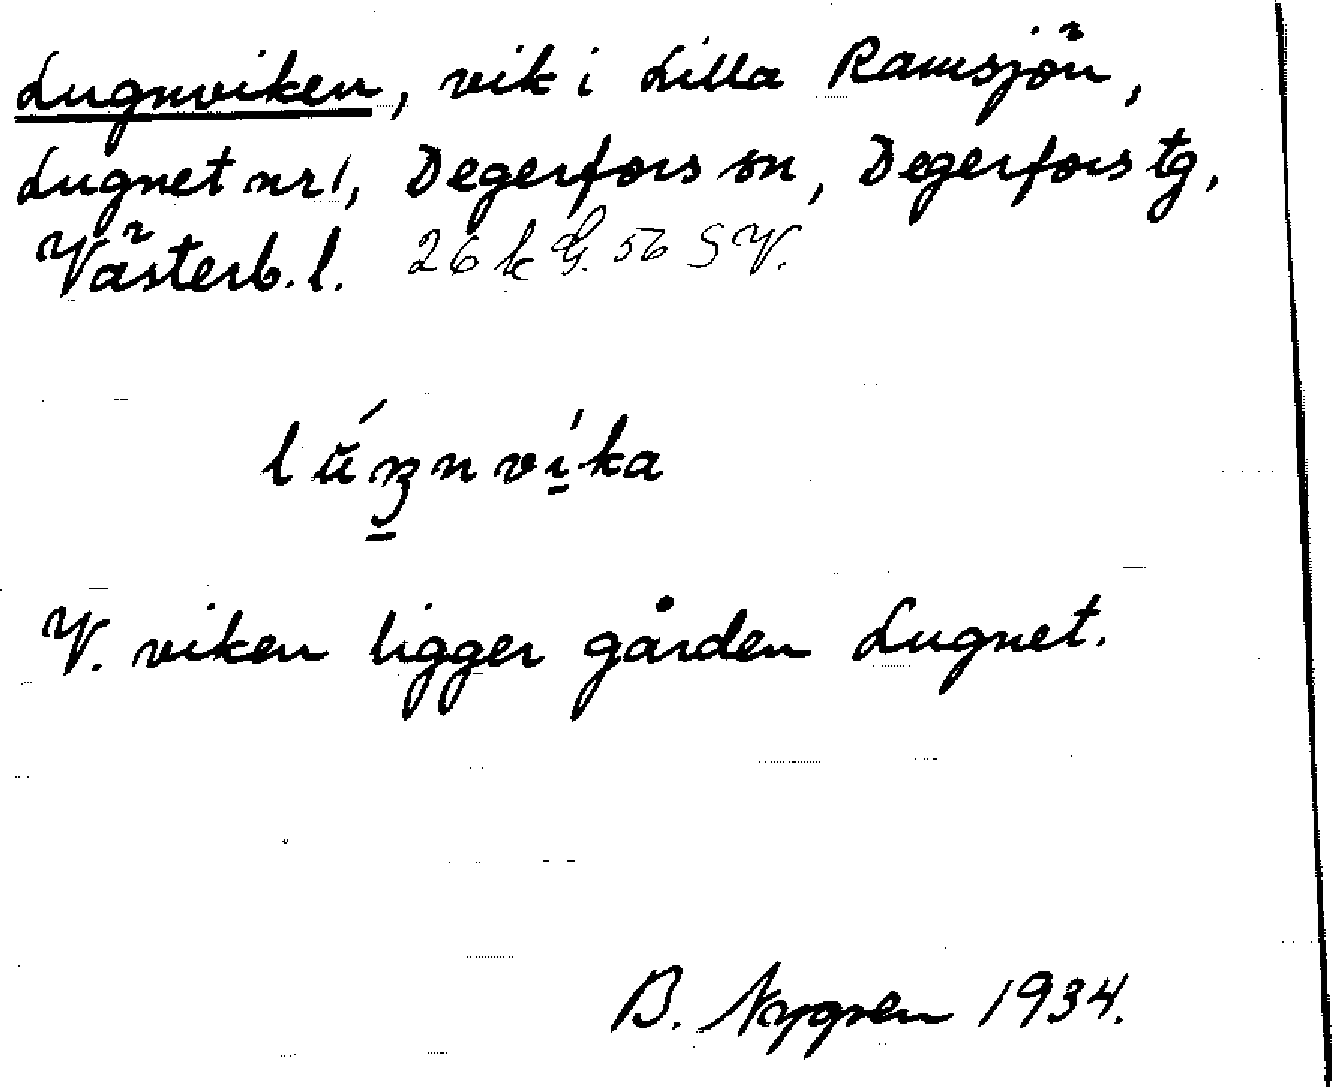 Lugnviken, vik i Lilla Ramsjön,
Lugnet nr 1, Degerfors sn, Degerfors tg,
Västerb. l. 26 k G. 56 S V.
lúŋnvíka
V. viken ligger gården Lugnet.
B. Nygren 1934.